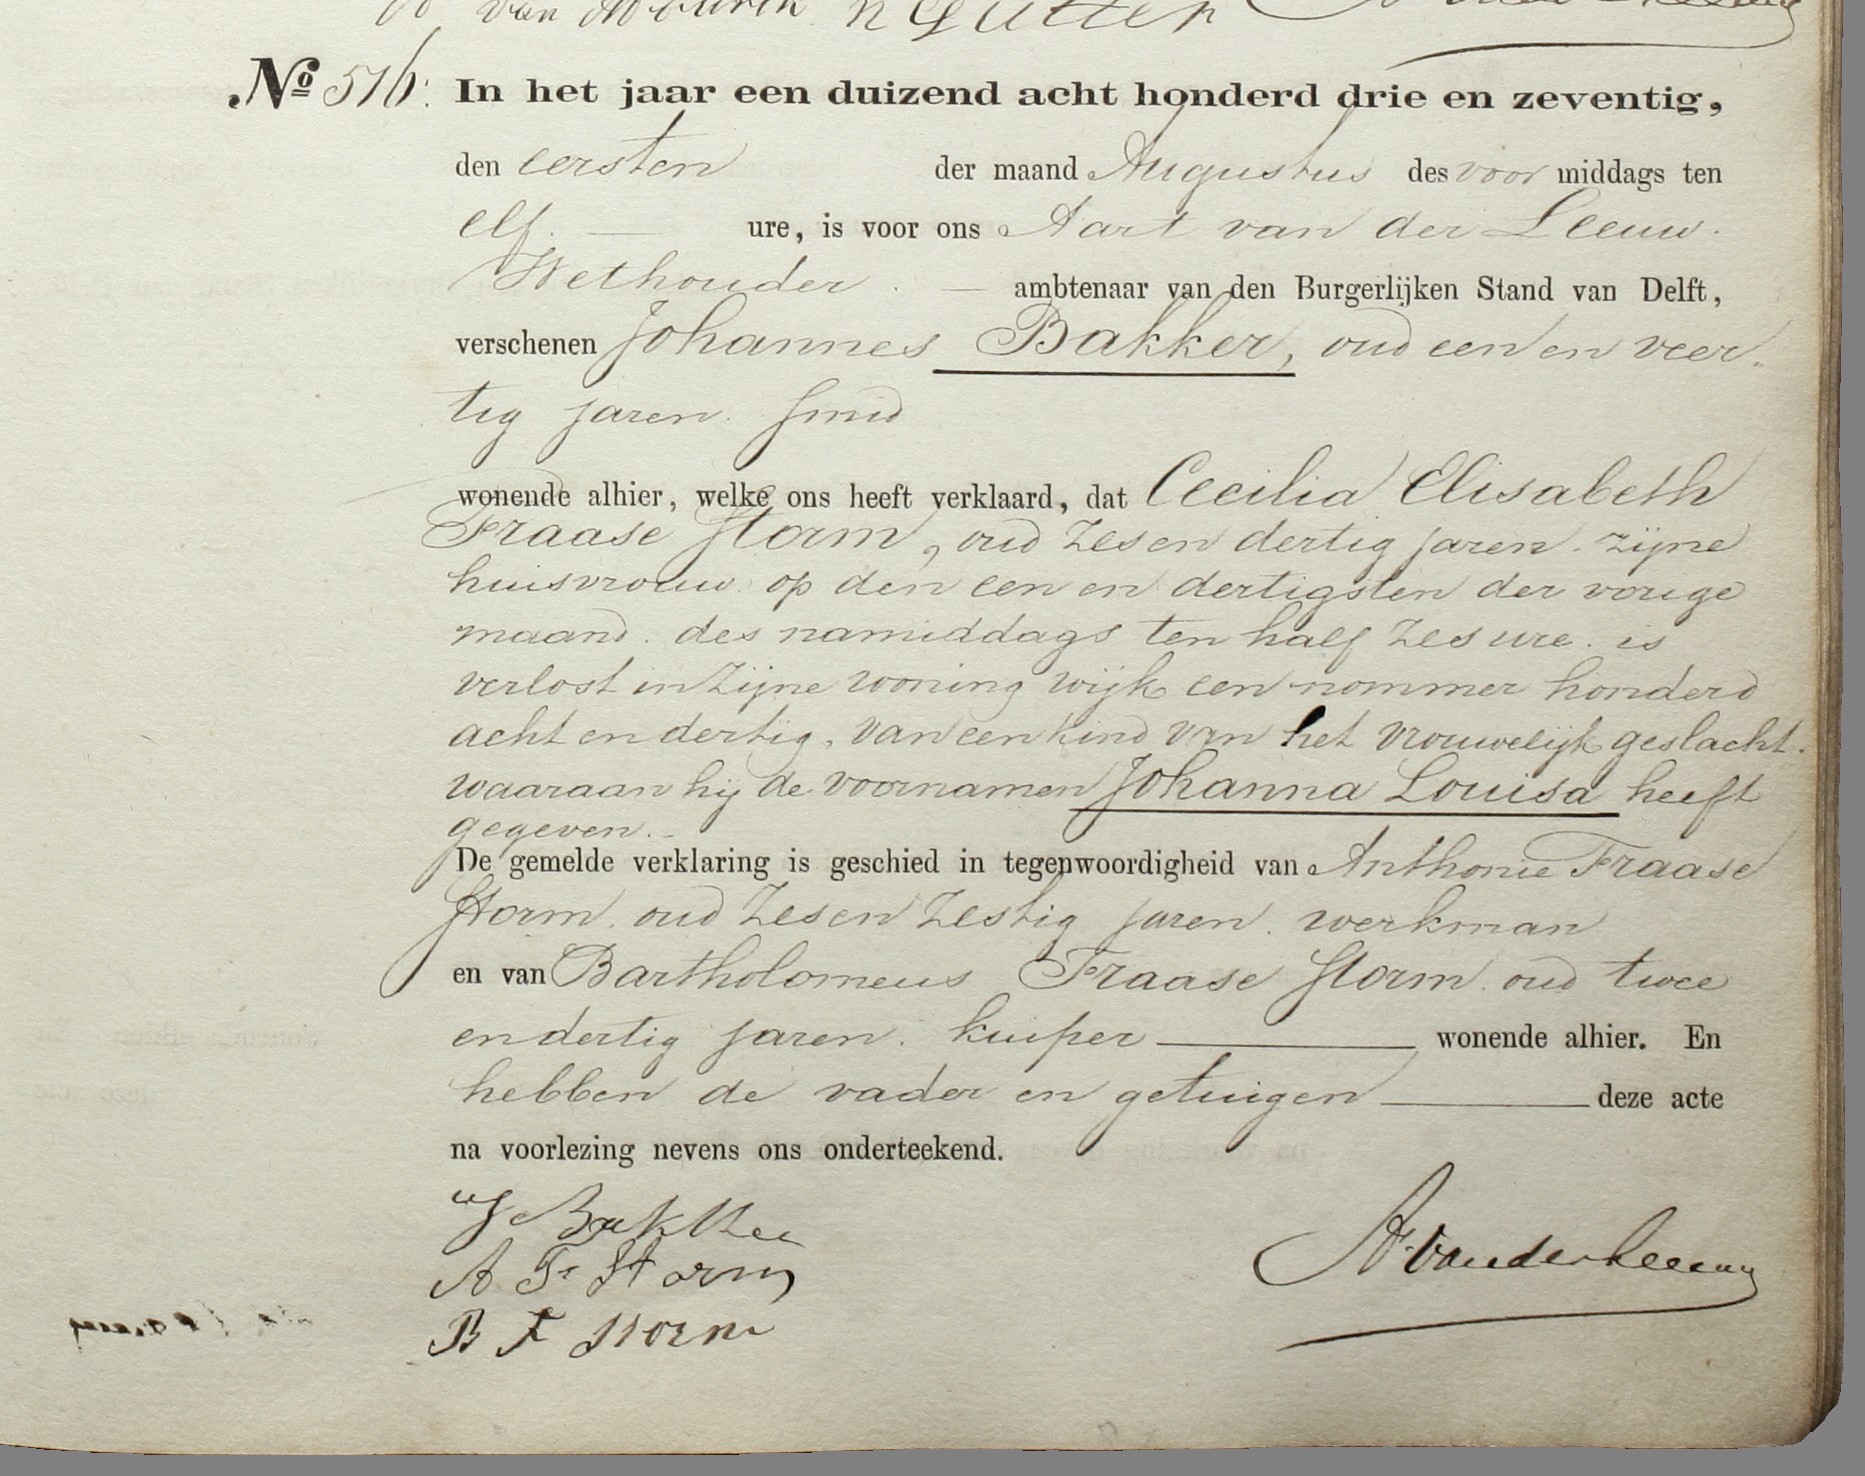 van
No 516. In het jaar een duizend acht honderd drie en zeventig,
den eersten der maand Augustus des voor middags ten
elf. — ure, is voor ons Aart van der Leeuw.
Wethouder. — ambtenaar van den Burgerlijken Stand van Delft,
verschenen Johannes Bakker, oud een en veer
tig jaren. smid
wonende alhier, welke ons heeft verklaard, dat Cecilia Elisabeth
Fraase Storm, oud zes en dertig jaren. zijne
huisvrouw op den een en dertigsten der vorige
maand. des namiddags ten half zes ure. is
verlost in zijne woning wijk een nommer honderd
acht en dertig, van een kind van het vrouwelijk geslacht.
waaraan hij de voornamen Johanna Louisa heeft
gegeven.-
De gemelde verklaring is geschied in tegenwoordigheid van Anthonie Fraase
Storm. oud zes en zestig jaren. werkman
en van Bartholomeus Fraase Storm. oud twee
en dertig jaren. kuiper — wonende alhier. En
hebben de vader en getuigen — deze acte
na voorlezing nevens ons onderteekend.
J Bakker
A Fr Storm
B F Storm
A. van der Leeuw